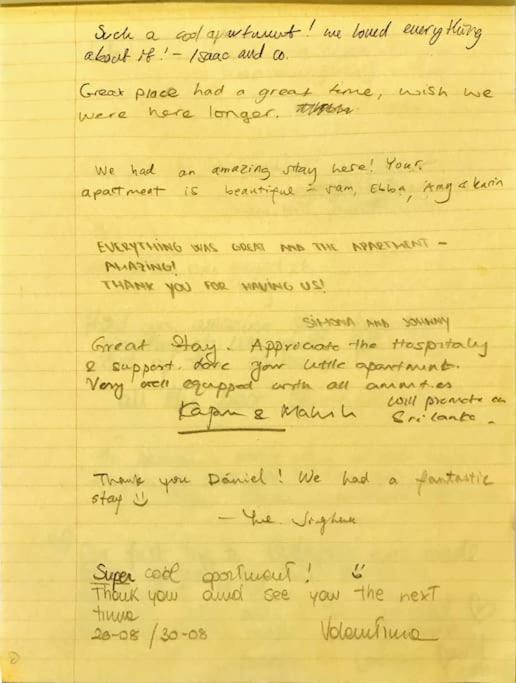 Such a cool apartment! we loved everything
about it! - Isaac and co.
Great place had a great time, wish we
were here longer.
We had an amazing stay here! Your
apartment is beautiful - Sam, Ebba, Amy & Karin
EVERYTHING WAS GREAT AND THE APARTMENT -
AMAZING!
THANK YOU FOR HAVING US!
SIMONA AND JOHNNY
Great Stay. Appreciate the Hospitality
& support. Love your little apartment.
Very well equipped with all
will promote in
Sri Lanka.
Thank you Dániel! We had a fantastic
stay ☺
- The
Super cool apartment! ☺
Thank you and see you the next
time
28-08 / 30-08
Valentina